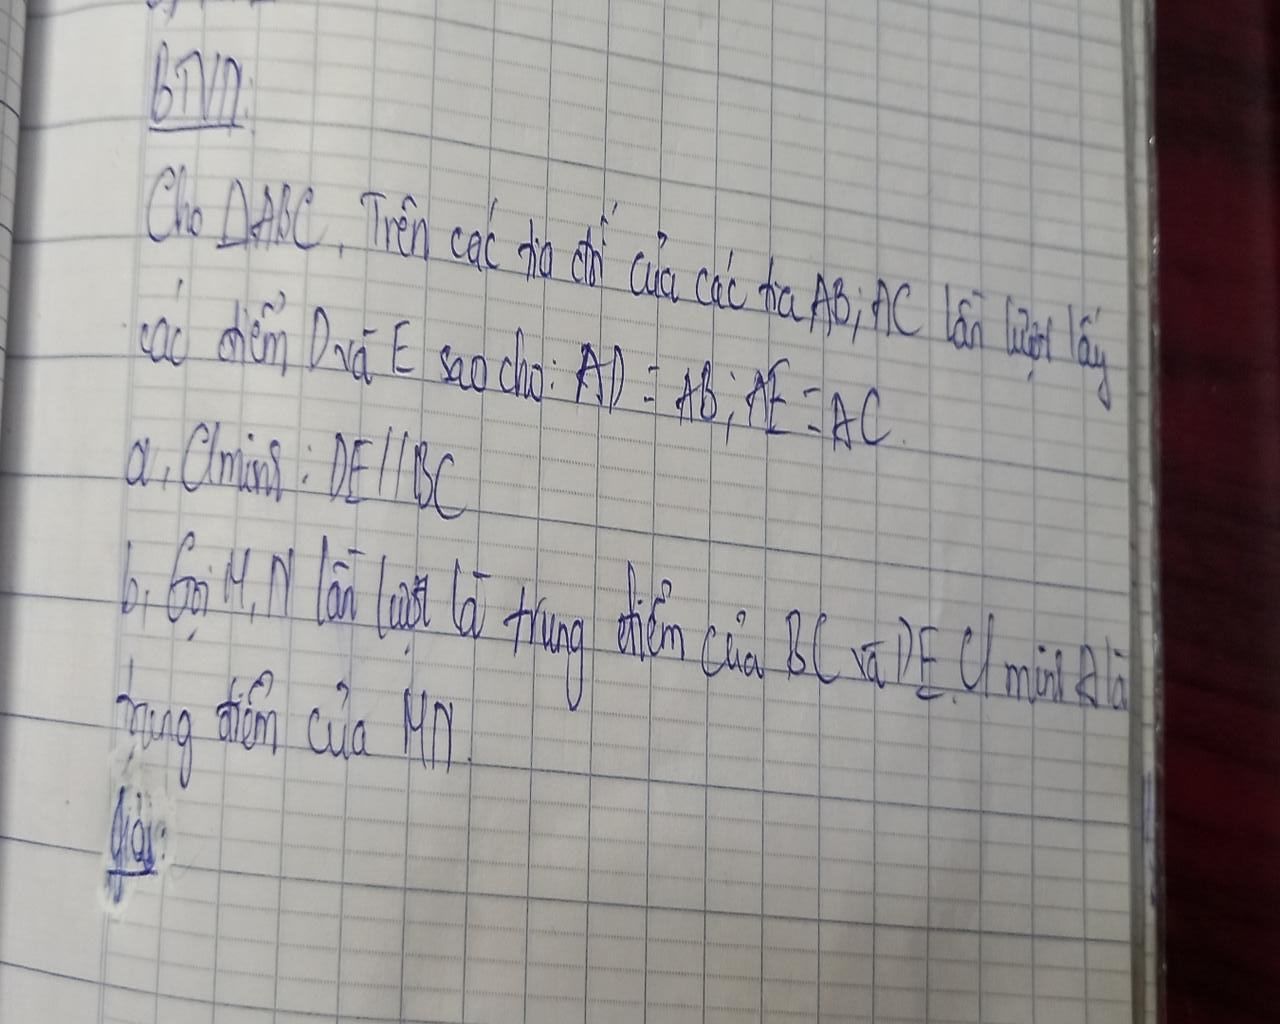 BTVN:
Cho ΔABC. Trên các tia đối của các tia AB; AC lần lượt lấy
các điểm D và E sao cho: AD = AB; AE = AC.
a, C/minh: DE//BC
b, Gọi M, N lần lượt là trung điểm của BC và DE. C/minh A là
trung điểm của MN.
Giải: